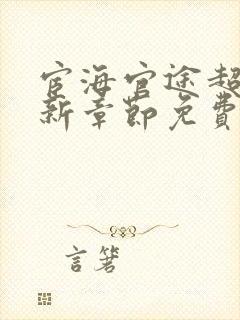 宦海官途超
新章節免費
言箸